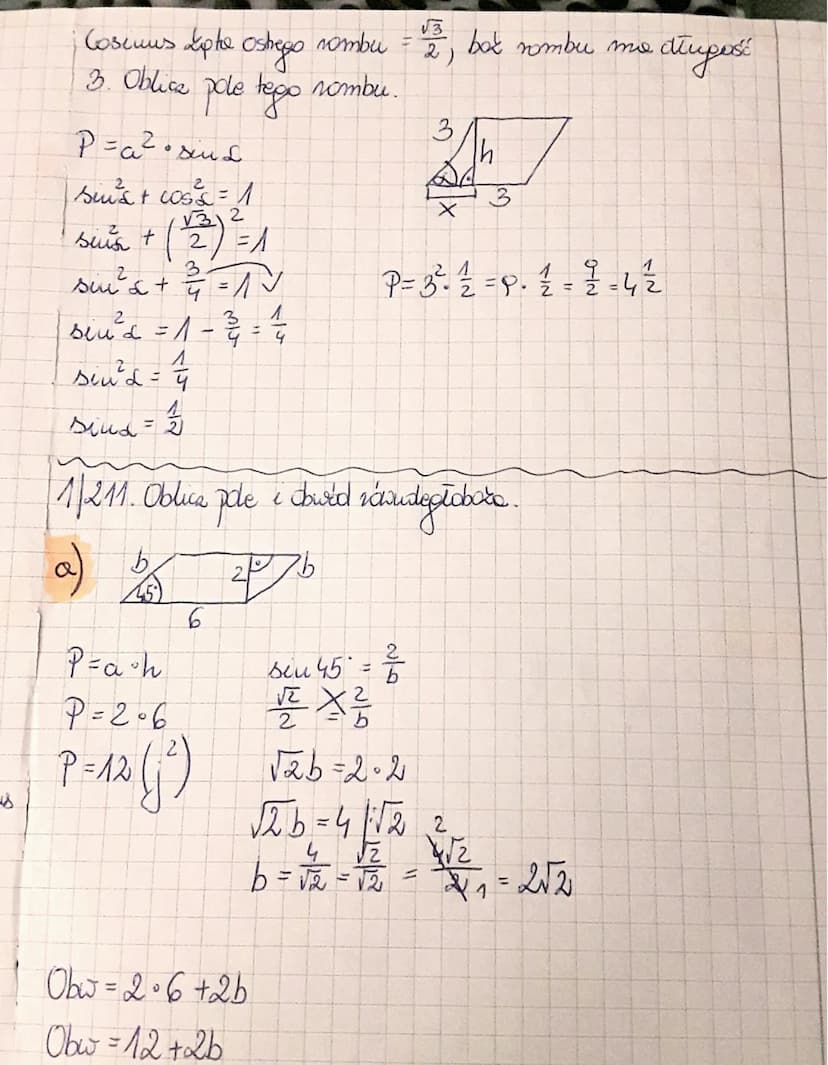 Cosinus kąta ostrego rombu = √3/2, bok rombu ma długość
3. Oblicz pole tego rombu.
P = a² · sin α
sin²α + cos²α = 1
sin²α + (√3/2)² = 1
sin²α + 3/4 = 1
sin²α = 1 - 3/4 = 1/4
sin²α = 1/4
sin α = 1/2
3
h
α
x
3
P = 3² · 1/2 = 9 · 1/2 = 9/2 = 4 1/2
1/211. Oblicz pole i obwód równoległoboku.
a)
b
45°
2
b
6
P = a · h
P = 2 · 6
P = 12 (j²)
sin 45° = 2/b
√2/2 = 2/b
√2 b = 2 · 2
√2 b = 4 |:√2
b = 4/√2 = √2/√2 = 4√2/2 = 2√2
2
1
Obw = 2 · 6 + 2b
Obw = 12 + 2b